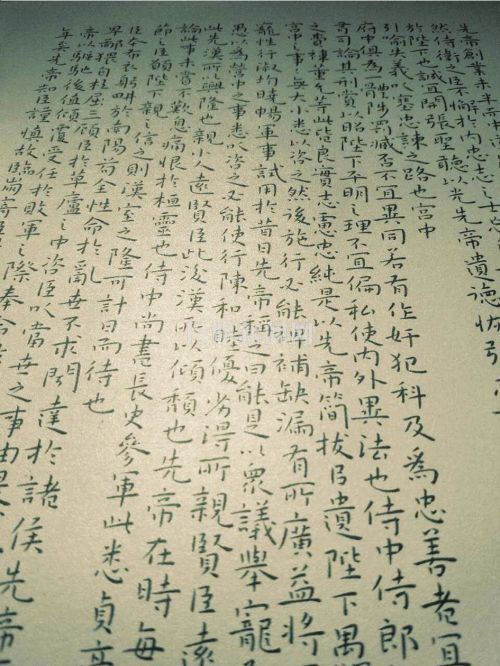 先帝創業未半
然侍衛之臣不懈於內忠志之士
於陛下也誠宜開張聖聽以光先帝遺德恢弘
引喻失義以塞忠諫之路也宮中
府中俱為一體陟罰臧否不宜異同若有作奸犯科及為忠善者宜
司論其刑賞以昭陛下平明之理不宜偏私使內外異法也侍中侍郎
之費禕董允等此皆良實志慮忠純是以先帝簡拔以遺陛下愚
宮中之事事無大小悉以咨之然後施行必能裨補缺漏有所廣益將
寵性行淑均曉暢軍事試用於昔日先帝稱之曰能是以衆議舉寵
愚以為營中之事悉以咨之必能使行陳和睦優劣得所親賢臣遠
此先漢所以興隆也親小人遠賢臣此後漢所以傾頹也先帝在時每
論此事未嘗不歎息痛恨於桓靈也侍中尚書長史參軍此悉貞亮
節之臣願陛下親之信之則漢室之隆可計日而待也
臣本布衣躬畊於南陽苟全性命於亂世不求聞達於諸侯先帝
卑鄙猥自枉屈三顧臣於草廬之中咨臣以當世之事由是
帝以驅馳後值傾覆受任於敗軍之際奉命
年矣先帝知臣謹慎故臨崩寄臣